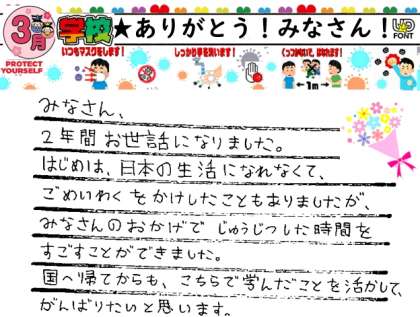 3月 学校★ありがとう！みなさん！UD FONT
PROTECT YOURSELF
いつもマスクをします！ しっかり手を洗います！ くっつかないで、はなれます！
1m
みなさん、
2年間お世話になりました。
はじめは、日本の生活になれなくて、
ごめいわくをかけしたこともありましたが、
みなさんのおかげで じゅうじつした時間を
すごすことができました。
国へ帰てからも、こちらで学んだことを活かして、
がんばりたいと思います。